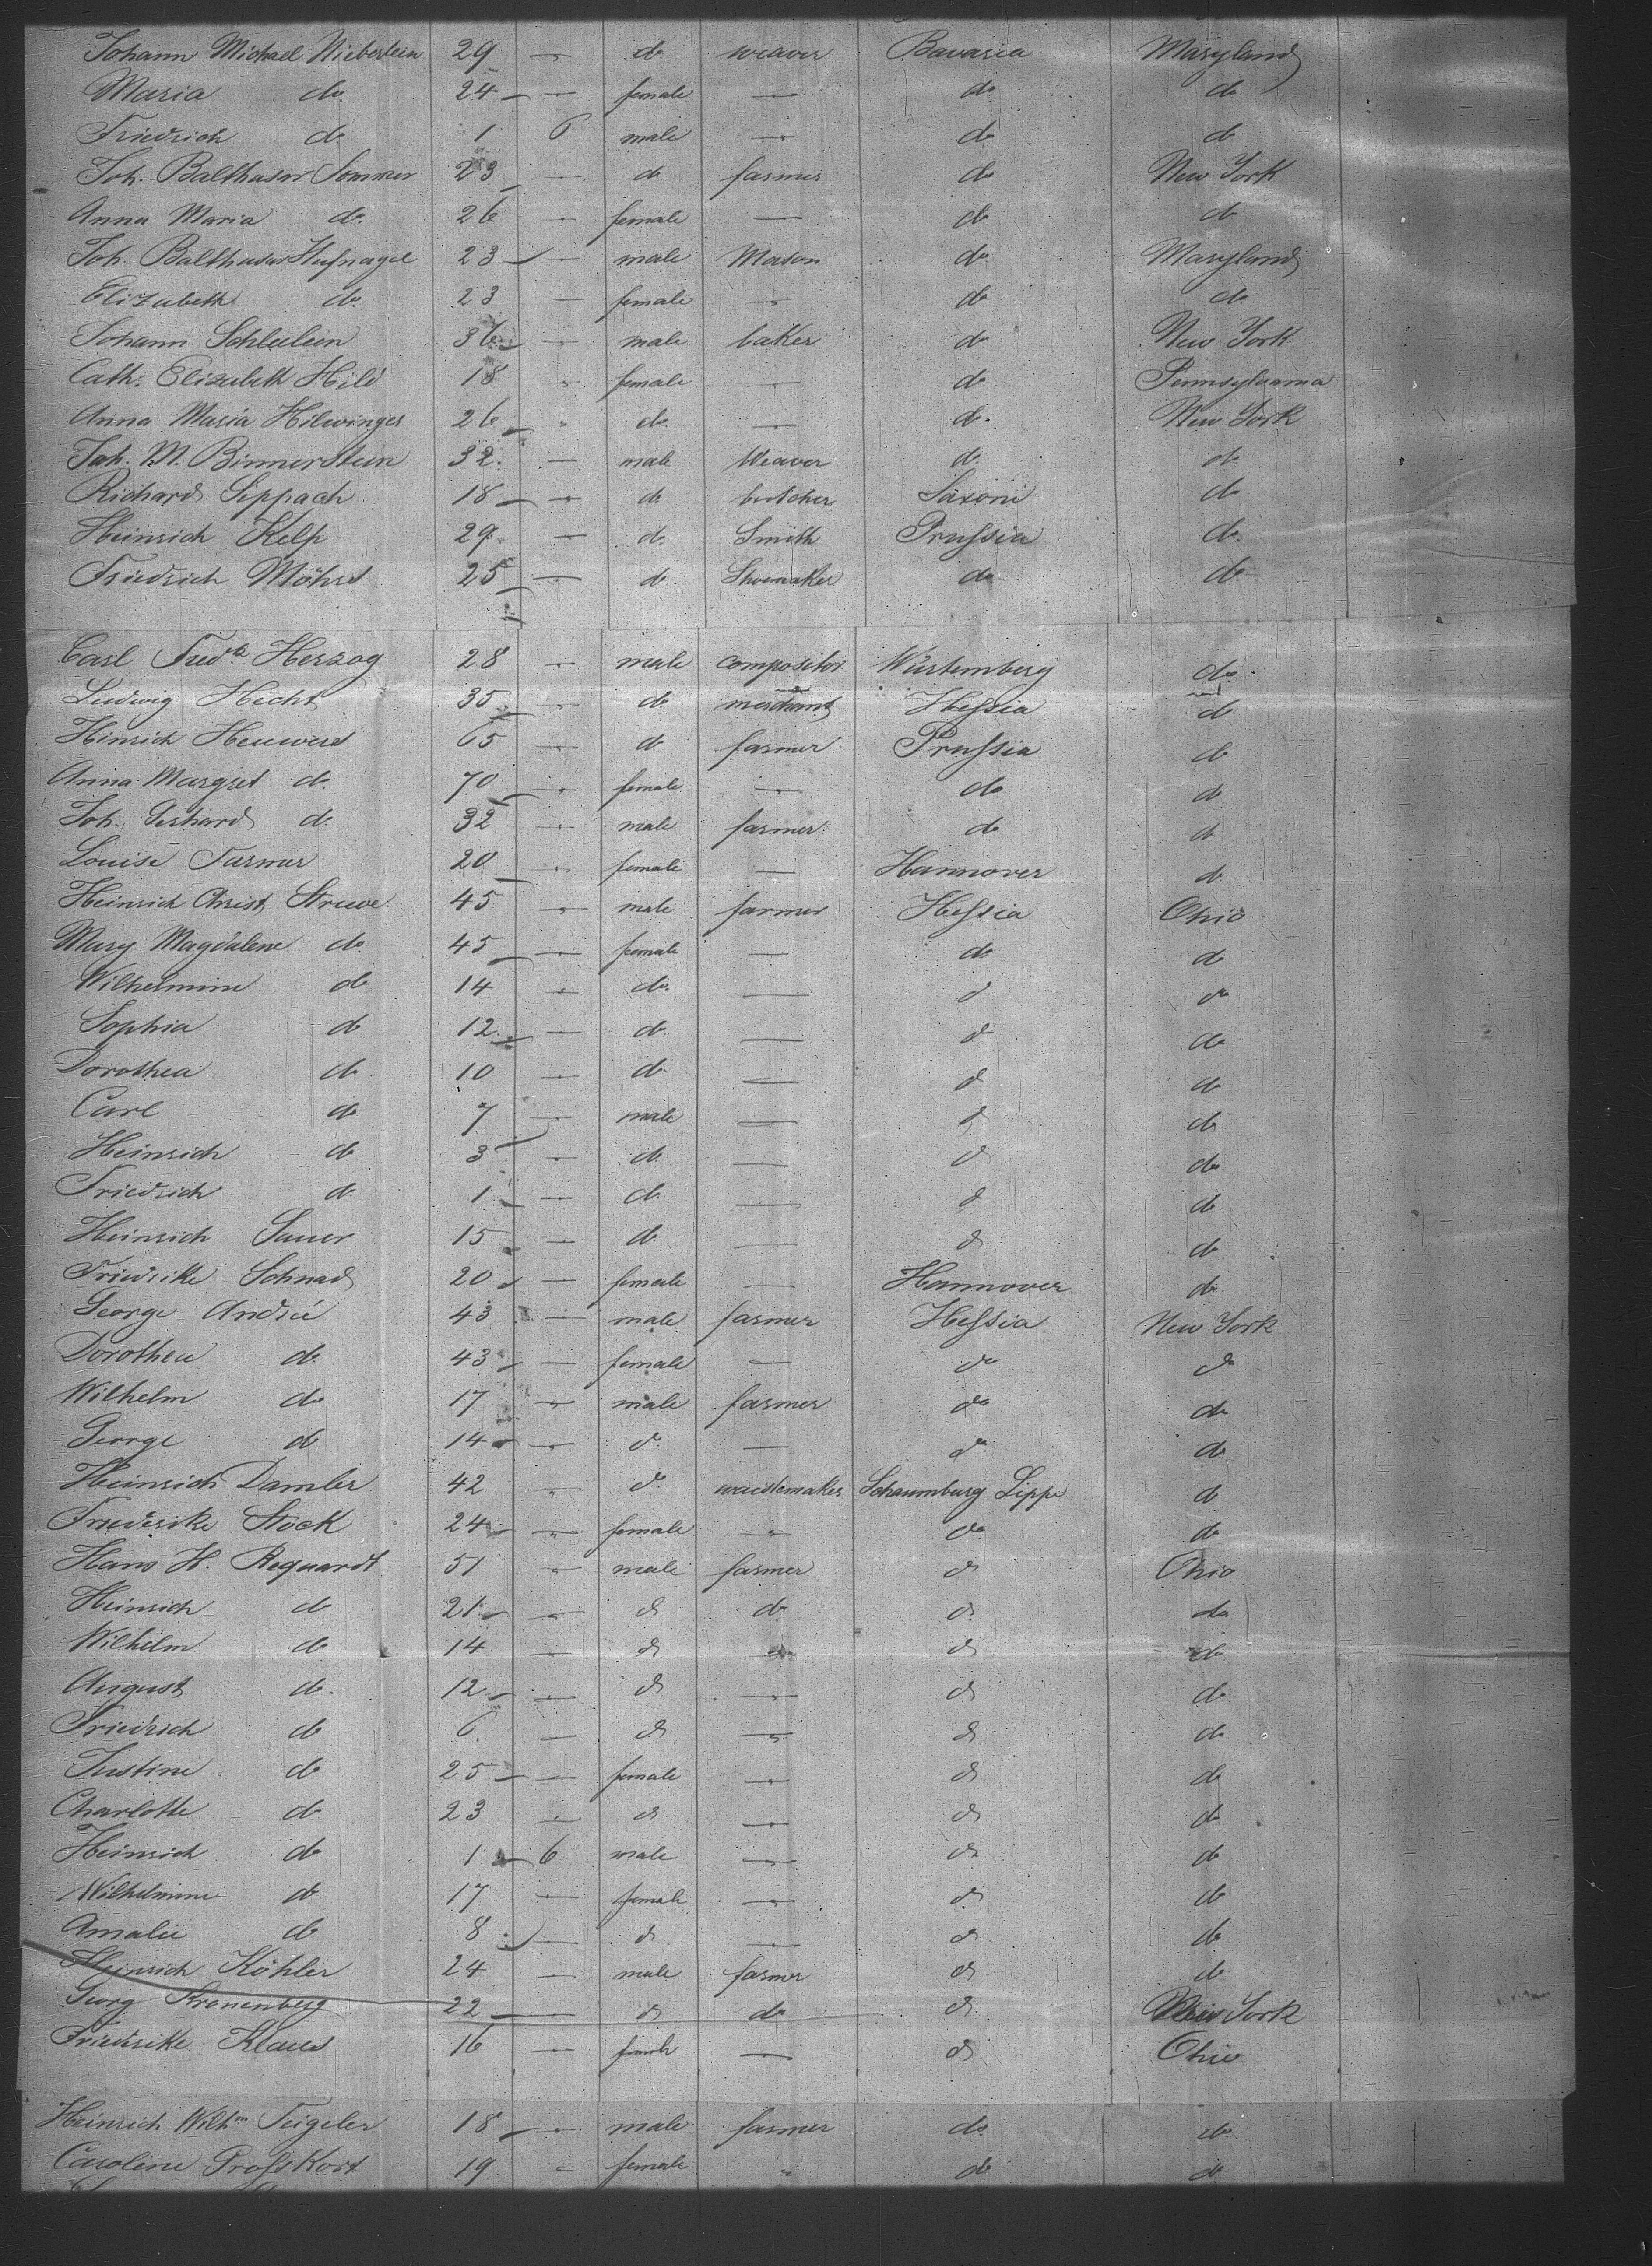 Johann Michael Nieberlein 29 — do weaver Bavaria Maryland
Maria do. 24 — female — do do
Friedrich do 1 6 male — do do
Joh. Balthasar Sommer 23 — do farmer do New York
Anna Maria do. 26 — female — do do
Joh. Balthasar Hufnagel 23 — male Mason do. Maryland
Elizabeth do. 23 — female — do do
Johann Schleelein 36 — male baker do New York
Cath. Elizabeth Hild 18 — female — do Pennsylvania
Anna Maria Hilwinger 26 — do. — do. New York
Joh. M. Binnerstein 32. — male Weaver do. do
Richard Lippach 18 — do butcher Saxoni do
Heinrich Kelp 29. — do. Smith Prussia do.
Friedrich Möhrs 25 — do. Shoemaker do do
Carl Fred Herzog 28 — male compositor Würtemberg do.
Ludwig Hecht 35 — do merchant Hessia do
Hinrich Heuwers 65 — do farmer Prussia do
Anna Margret do. 70 — female — do do
Joh. Gerhard do. 32 — male farmer. do do
Louise Farmer 20 — female — Hannover do
Heinrich Christ. Struve 45 — male farmer Hessia Ohio
Mary Magdalene do. 45 — female — do do
Wilhelmine do 14 — do. — do do
Sophia do 12 — do. — do do
Dorothea do 10 — do — do do
Carl do 7 — male — do do
Heinrich do 3 — do. — do do
Friedrich do 1 — do — do do
Heinrich Sauer 15 — do. — do do
Friedrike Schnad 20 — female — Hannover do
George Andreé 43 — male farmer Hessia New York
Dorothea do. 43 — female — do do
Wilhelm do 17 — male farmer do do
George do 14 — do — do do
Heinrich Damler 42 — do Schaumburg Lippe do
Friederike Stock 24 — female — do do
Hans H. Requardt 51 — male farmer do Ohio
Heinrich do 21 — do do do do
Wilhelm do. 14 — do do do do
August do. 12 — do — do do
Friedrich do 6 — do — do do
Justine do 25 — female — do do
Charlotte do 23 — do — do do
Heinrich do 1 6 male — do do
Wilhelmine do 17 — female — do do
Amalie do 8 — do — do do
Heinrich Köhler 24 — male farmer do do
Georg Kronenberg 22 — do do do New York
Friederike Klaues 16 — female — do Ohio
Heinrich Wilhm Teigeler 18 — male farmer do. do.
Caroline Prosskort 19 — female " do do